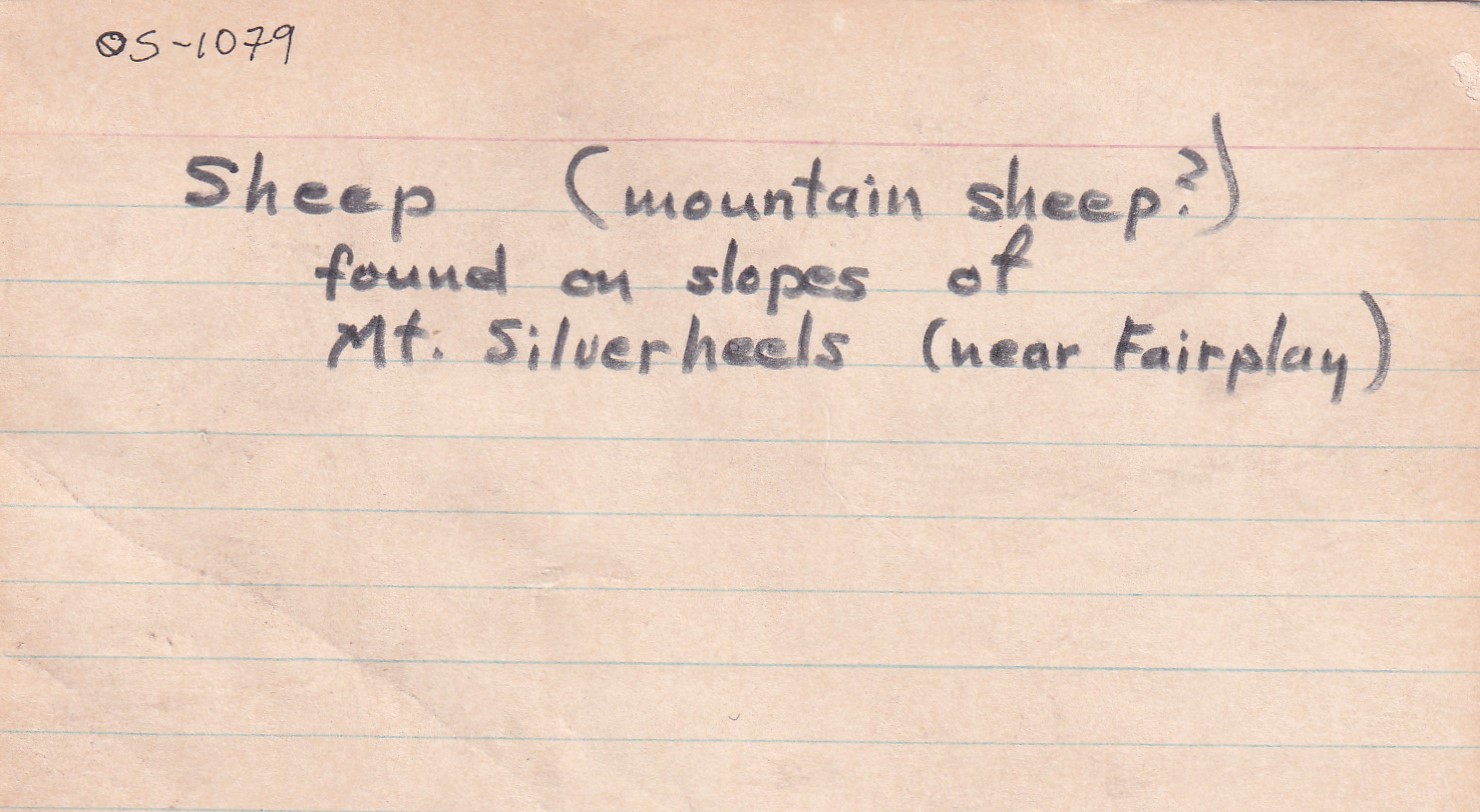 OS-1079
Sheep (mountain sheep?)
found on slopes of
Mt. Silverheels (near Fairplay)